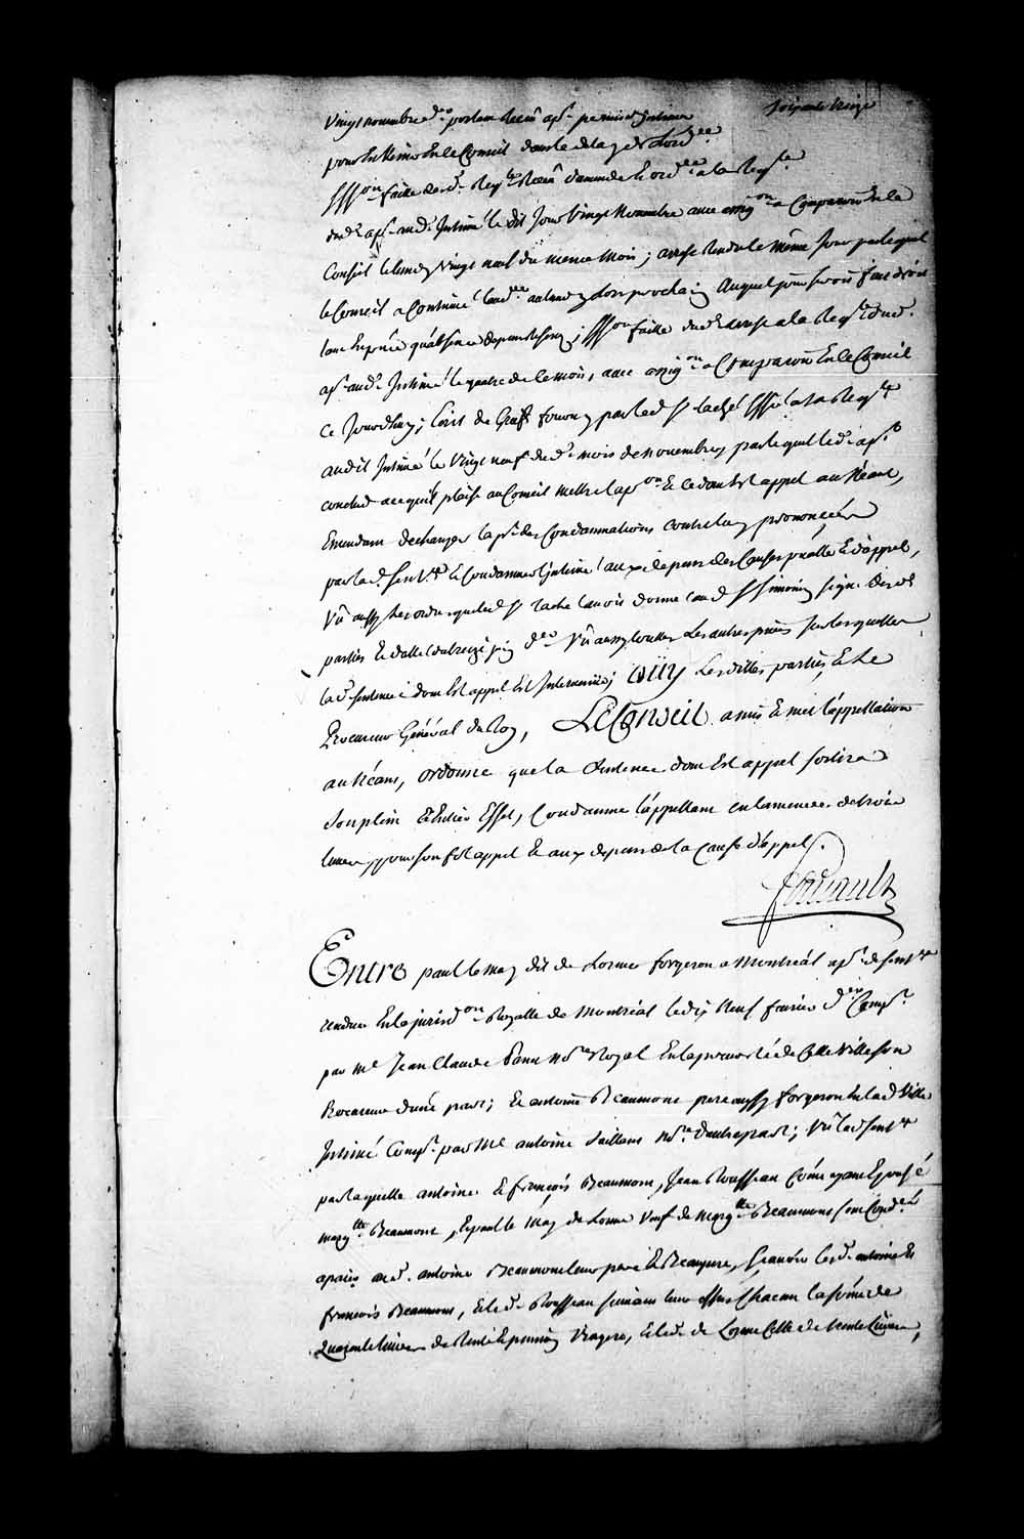 Soixante treize
Vingt novembre d.er portant Recû ap.t permis d'Intimer
pour En Venir En le Conseil dans le delay de L'ord.ce
Siff.on faitte de lad. Req.te Recû d'ap. et ord.ce a la Req.te
dud. ap.t aud. Intimé le dit Jour Vingt Novembre avec assig.on a Comparoir En le
Conseil le lundy Vingt neuf du meme Mois; arrest Rendu le même Jour par lequel
le Conseil a Continué la aud.ce au lundy Lors prochain Auquel jour seroit fait droit
tant En presence qu'absence des parties; Siff.on faitte dud. arrest a la Req.te dud.
ap.t aud. Intimé le quatre de ce mois, avec assig.on a Comparoir En le Conseil
Ce Jourd'huy; Ecrit de Griefs fourny par led. S.r taché Siff.é a sa Req.te
audit Intimé le Vingt neuf dud. mois de novembre, par lequel led. ap.t
conclud a ce qu'il plaise au Conseil mettre l'ap.on Et ce dont Est appel au Néant,
Emendant decharger la p.r des Condamnations contre luy prononcées
par lad. Sent.ce Et Condamner l'Intimé aux depens des Causes p.alle Et d'appel,
Vû aussy les ordres que led. S.r taché avoit donné aud. S.r Simonin signé desd.
parties Et datté du treize juin d.er Vû aussy toutes Les autres pieces sur lesquelles
la d. sentence dont Est appel Est Intervenüe; Oüy Lesdittes parties, Et Le
Procureur Général du Roy, Le Conseil a mis Et met l'appellation
au Néant, ordonne que la Sentence dont Est appel sortira
son plein Et Entier Effet, Condamne l'appellant en l'amende de trois
livres pour son fol appel Et aux depens de la Cause d'appel.
Foucault
Entre paul le may dit de Lorme forgeron a Montréal ap.t de sent.ce
rendue En la jurisd.on Royalle de Montréal le dix Neuf fevrier d.er Comp.t
par M.e Jean Claude Panet N.re Royal En la prevosté de Cette Ville son
Procureur d'une part; Et antoine Beaumont pere aussy forgeron En lad. Ville
Intimé Comp.t par M.e antoine Saillant N.re d'autre part; Vû lad. sent.ce
par laquelle antoine Et françois Beaumont, Jean Rousseau Côme ayant Epousé
Marg.tte Beaumont, Et paul le May de Lorme Veuf de Marg.tte Beaumont sont Cond.és
a payer aud. antoine Beaumont leur pere Et Beaupere, sçavoir lesd. antoine Et
françois Beaumont, Et led. Rousseau suivant leur offres Chacun la sôme de
Quarante livres de Rente Et pension Viagere, Et led. de Lorme Celle de trente Livres,